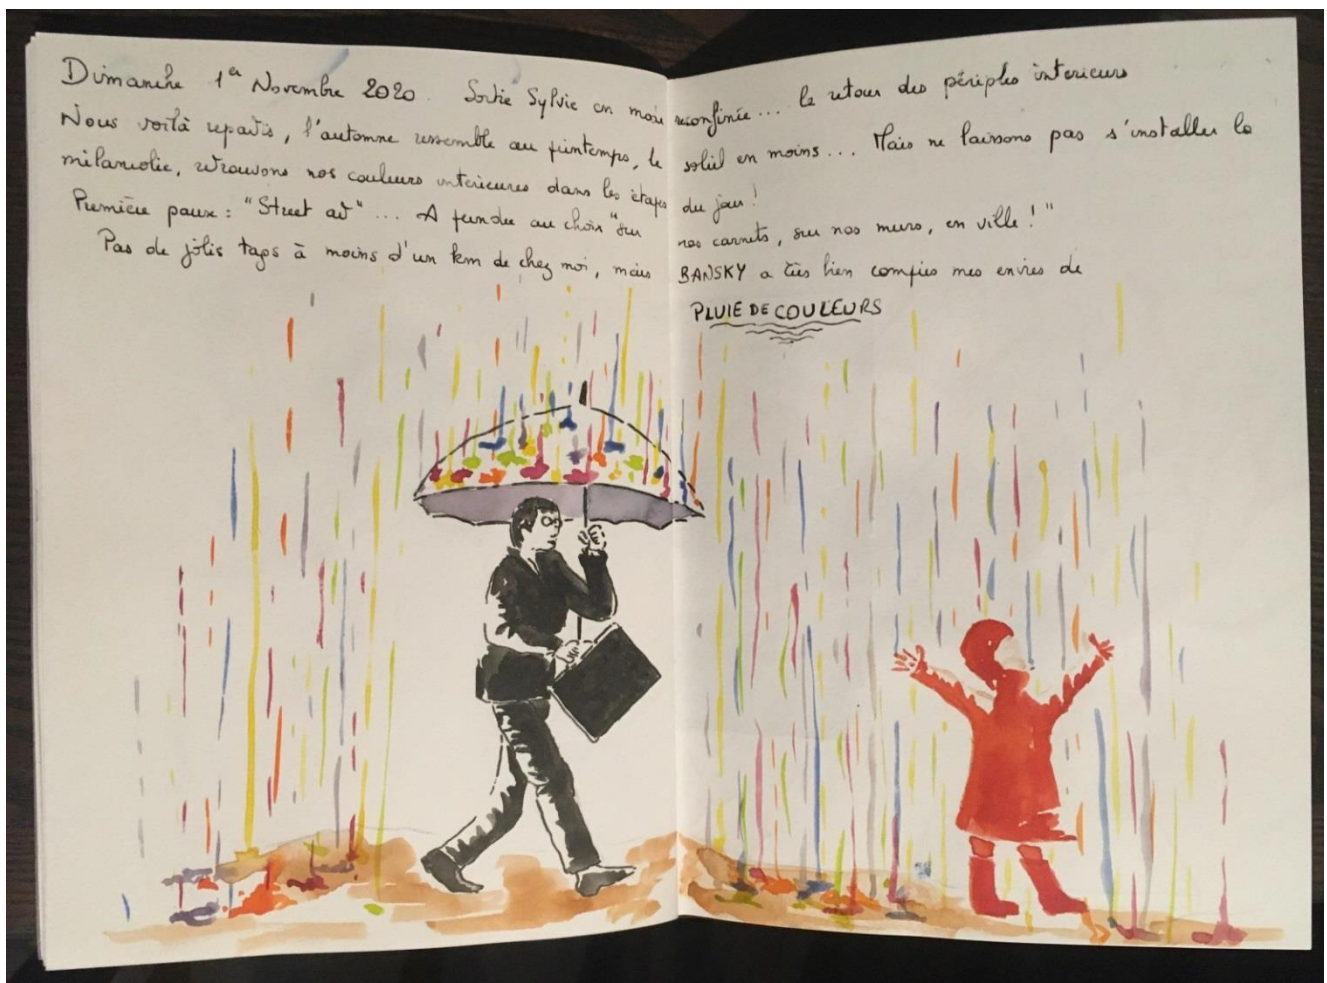 Dimanche 1er Novembre 2020. Sortie Sylvie en mode reconfinée... le retour des périples interieurs
Nous voilà repartis, l'automne ressemble au printemps, le soleil en moins... Mais ne laissons pas s'installer la
mélancolie, retrouvons nos couleurs interieures dans les étapes du jour!
Première pause : "Street art"... A prendre au choix "sur nos carnets, sur nos murs, en ville!"
Pas de jolis tags à moins d'un km de chez moi, mais BANSKY a très bien compris mes envies de
PLUIE DE COULEURS